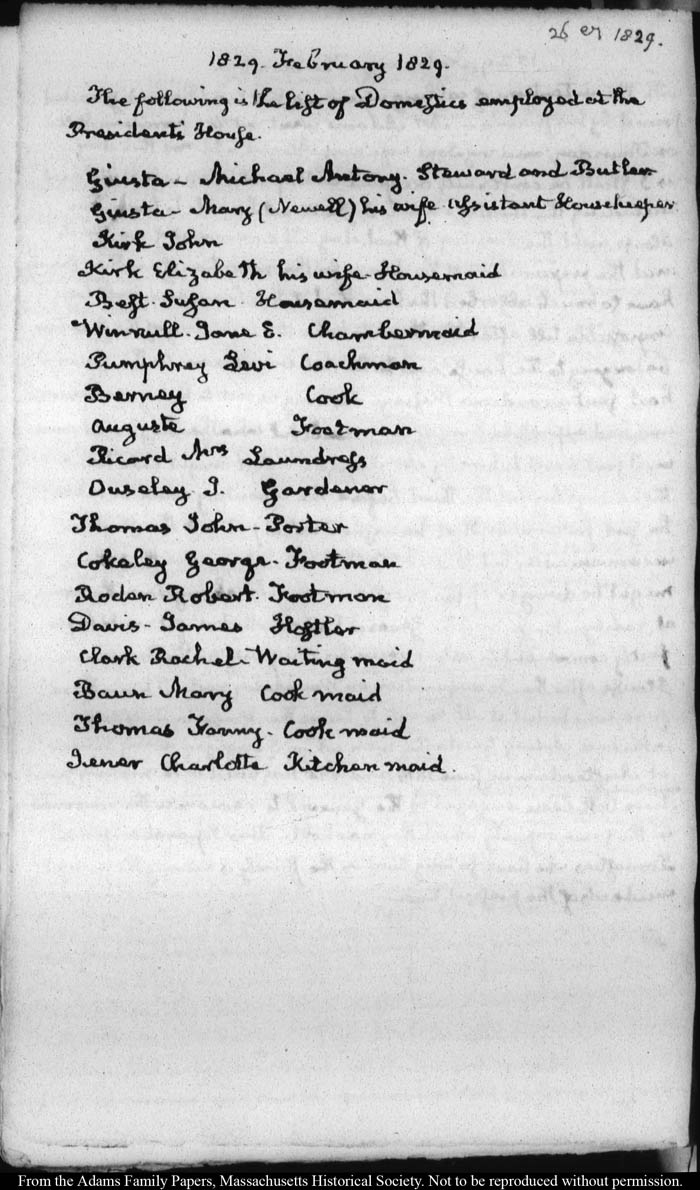 26 er 1829.
1829. February 1829.
The following is the list of Domestics employed at the
Presidents House.
Giusta - Michael Antony. Steward and Butler
Giusta - Mary (Newell) his wife Assistant Housekeeper
Kirk John
Kirk Elizabeth his wife Housemaid
Best Susan Housemaid
Winnull. Jane E. Chambermaid
Pumphrey Levi Coachman
Berney Cook
Auguste Footman
Ricard Mrs Laundress
Ouseley J. Gardener
Thomas John - Porter
Cokeley George - Footman
Roden Robert. Footman
Davis - James Hostler
Clark Rachel. Waiting maid
Baun Mary Cook maid
Thomas Fanny - Cook maid
Jener Charlotte Kitchen maid.
From the Adams Family Papers, Massachusetts Historical Society. Not to be reproduced without permission.